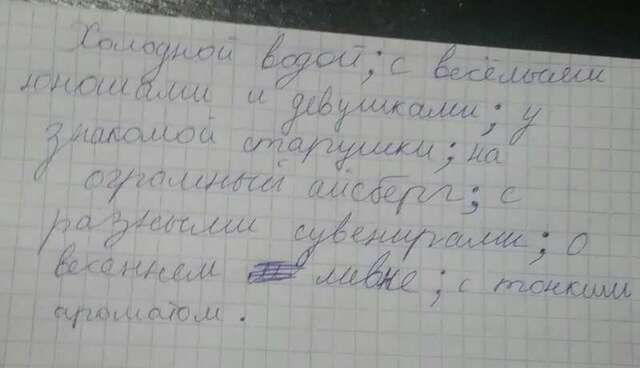 Холодной водой; с весёлыми
юношами и девушками; у
знакомой старушки; на
огромный айсберг; с
разными сувенирами; о
весеннем ливне; с тонким
ароматом.